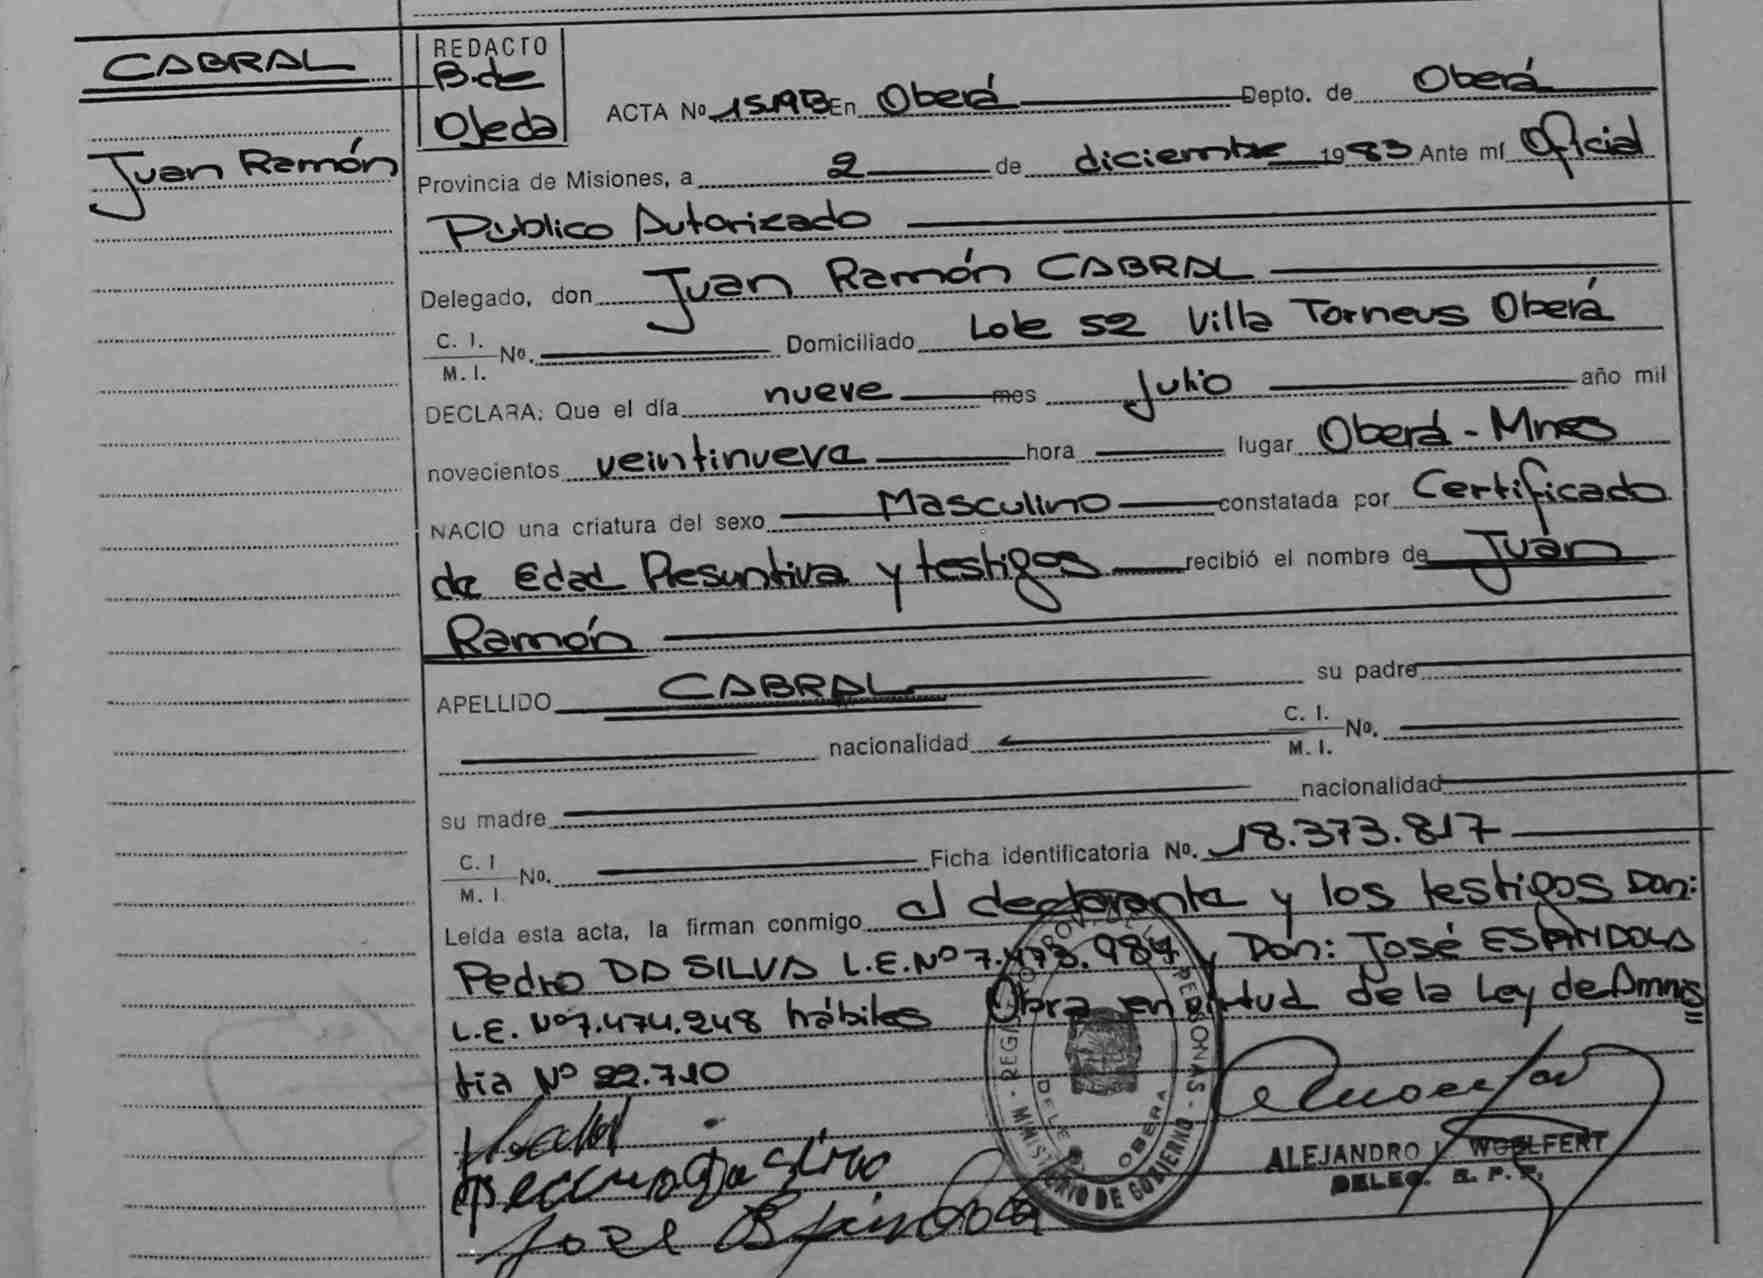 CABRAL
Juan Ramón
REDACTO
B. de
Ojeda
ACTA Nº En Oberá Depto. de Oberá
Provincia de Misiones, a 2 de diciembre 1983 Ante mí Oficial
Público Autorizado
Delegado, don Juan Ramón CABRAL
C. I.
M. I. Nº. Domiciliado Lote 52 Villa Torneus Oberá
DECLARA: Que el día nueve mes Julio año mil
novecientos veintinueve hora lugar Oberá - Mnes
NACIO una criatura del sexo Masculino constatada por Certificado
de Edad Presuntiva y testigos recibió el nombre de Juan
Ramón
APELLIDO CABRAL su padre
nacionalidad C. I.
M. I. Nº.
su madre nacionalidad
C. I
M. I. Nº. Ficha identificatoria Nº. 18.373.817
Leída esta acta, la firman conmigo el declarante y los testigos Don:
Pedro DA SILVA L.E. Nº 7.473.984 y Don: José ESPINDOLA
L.E. Nº 7.474.248 hábiles Obra en virtud de la Ley de Amnis
tia Nº 22.710
REGISTRO PROV. DE LAS PERSONAS - MINISTERIO DE GOBIERNO -
OBERA
ALEJANDRO WOELFERT
DELEG. R. P. P.